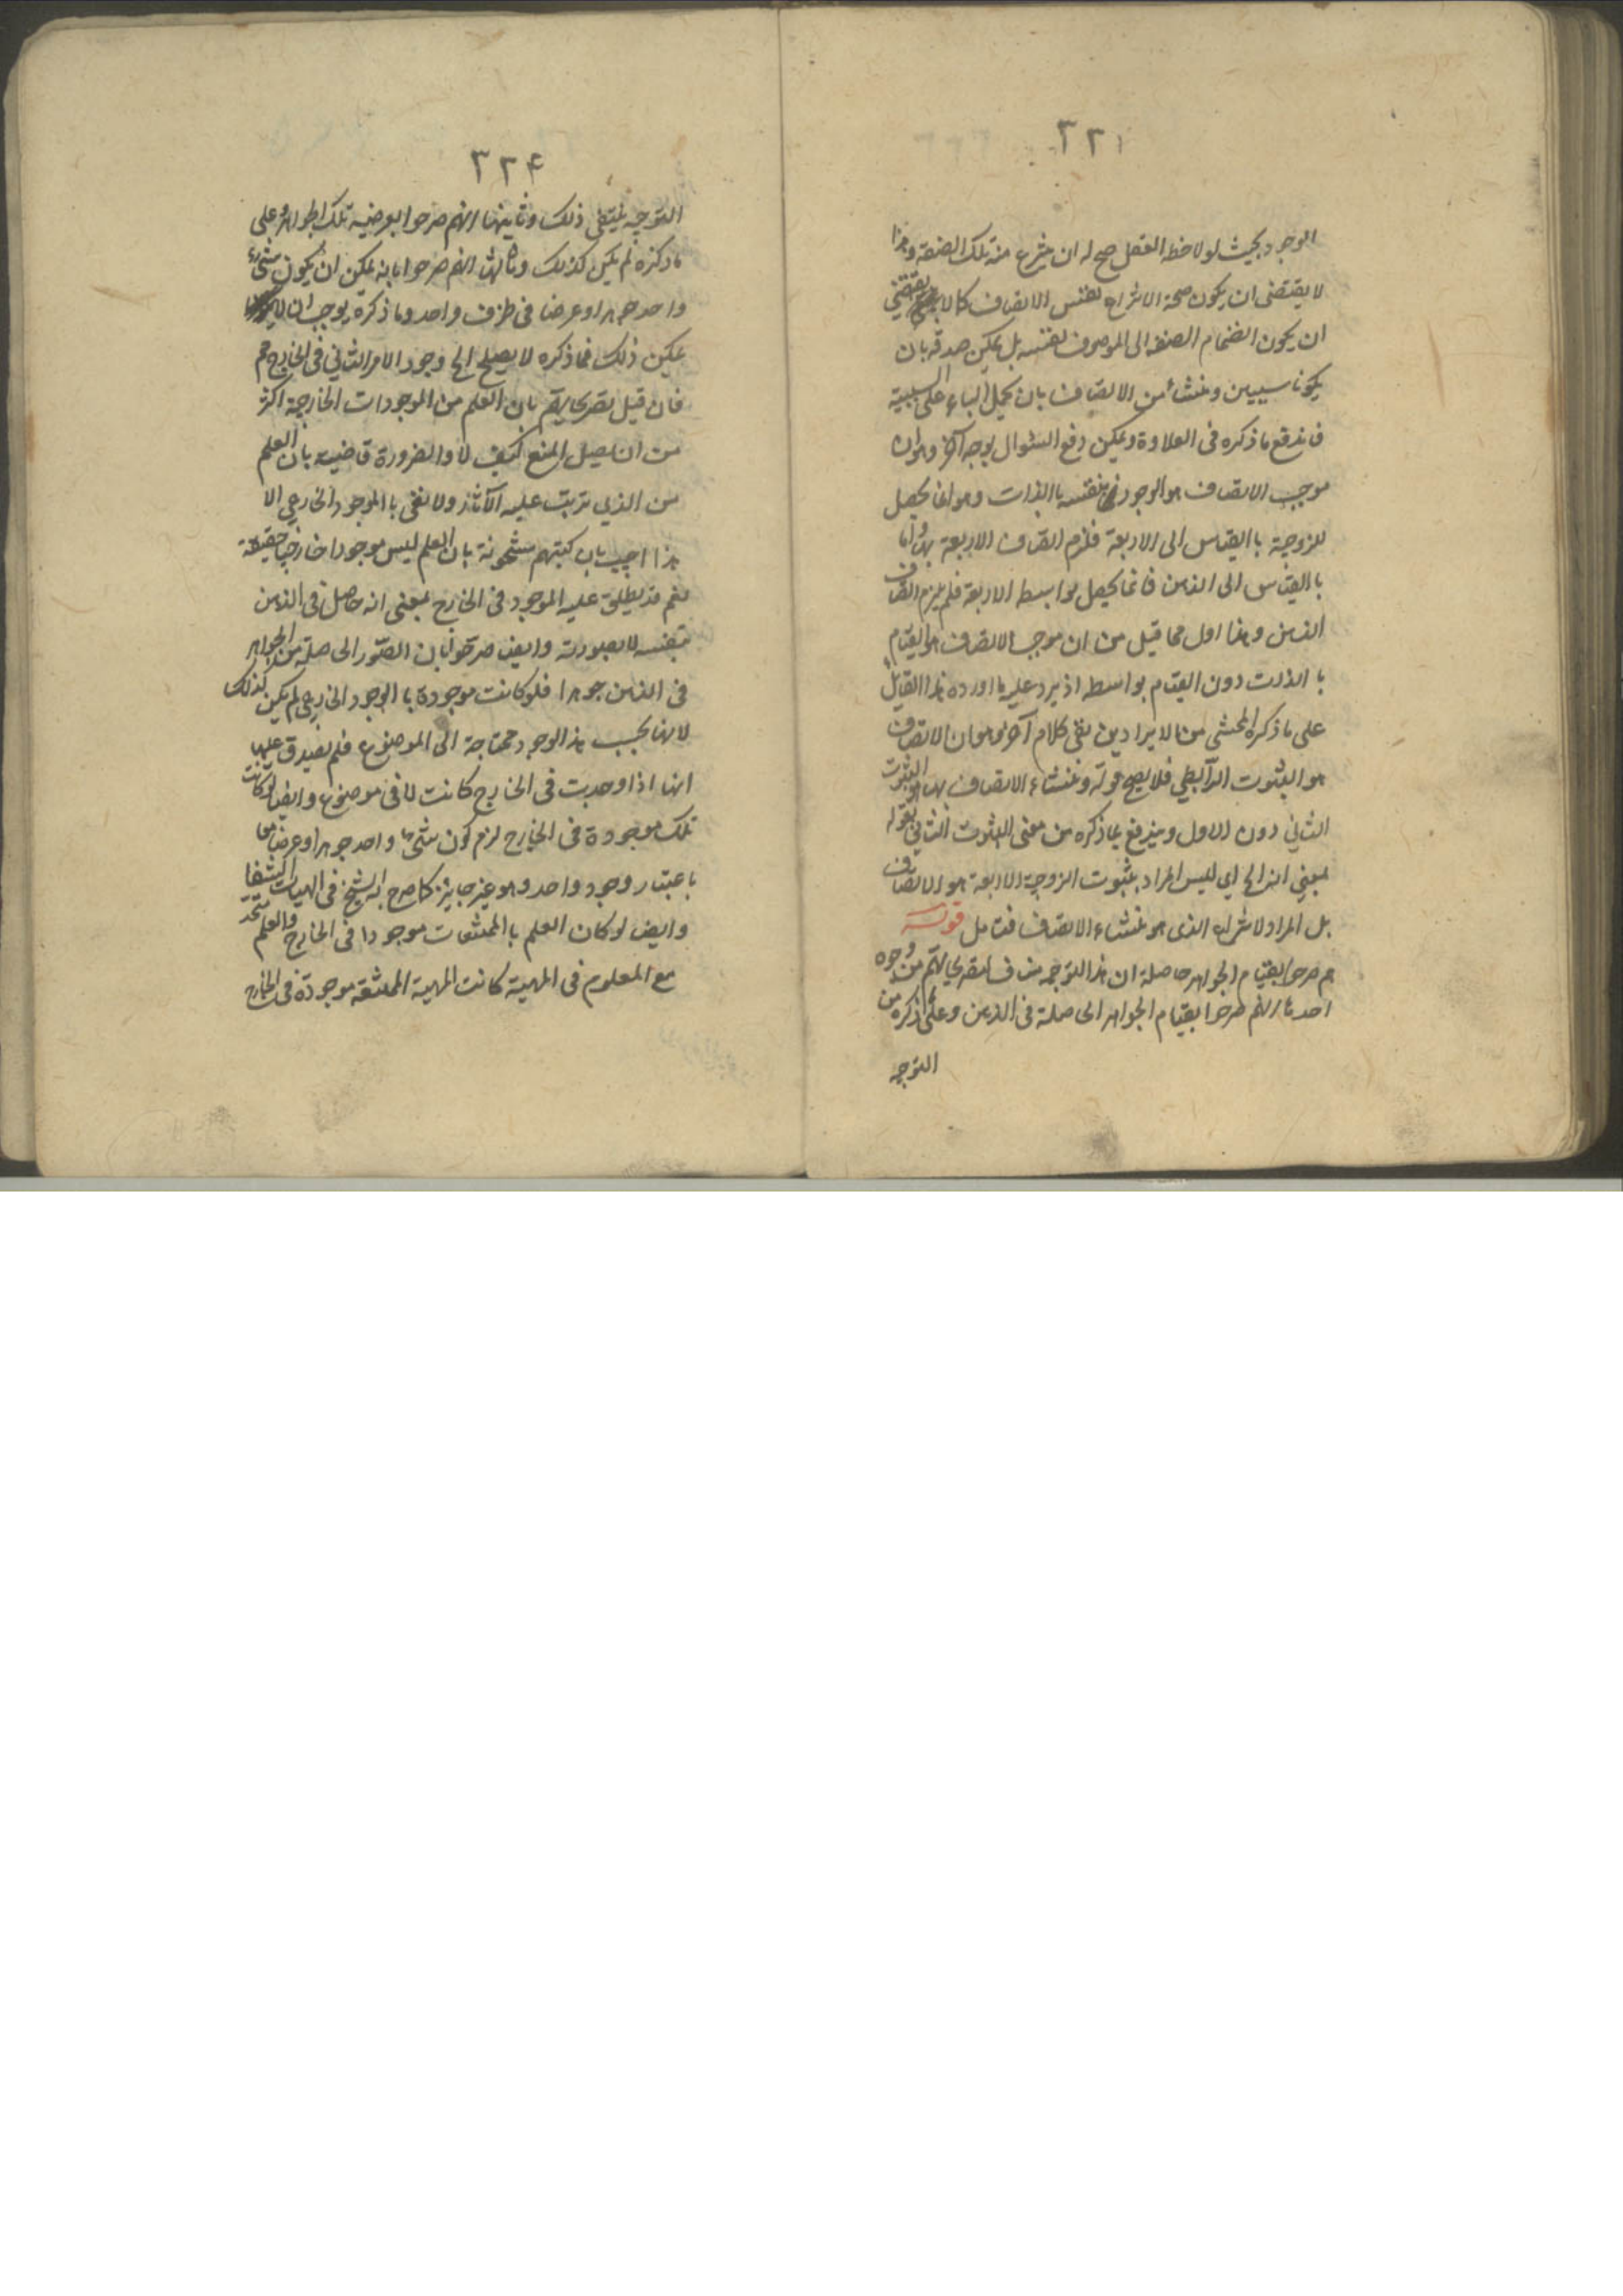 ٢٢١
الوجود بحيث لو لاحظه العقل صح له ان ينتزع منه تلك الصفة وهذا
لا يقتضى ان يكون صحة الانتزاع نفس الاتصاف كما لا يقتضي
ان يكون انضمام الصفة الى الموصوف نفسه بل يمكن صدقه بان
يكونا سببين ومنشأ من الاتصاف بان يحمل الباء على السببية
فاندفع ما ذكره فى العلاوة ويمكن دفع السئوال بوجه آخر وهو ان
موجب الاتصاف هو الوجود بنفسه باالذات وهو انما يحصل
للزوجية باالقياس الى الاربعة فلزم اتصاف الاربعة بها واما
باالقياس الى الذهن فانما يحصل بواسطه الاربعة فلم يلزم اتصاف
الذهن وهذا اول مما قيل من ان موجب الاتصاف هو القيام
باالذات دون القيام بواسطه اذ يرد عليه ما اورده هذا القائل
على ما ذكره المحشى من الايرادين بقى كلام آخر وهو ان الاتصاف
هو الثبوت الرابطي فلا يصح قوله ومنشاء الاتصاف بها هو الثبوت
الثاني دون الاول ويندفع بما ذكره من معنى الثبوت الثاني بقوله
بمعنى انه الخ اي ليس المراد بثبوت الزوجية للاربعة هو الاتصاف
بل المراد الانتزاع الذى هو منشاء الاتصاف فتامل قوله
هم صرحوا بقيام الجواهر حاصله ان هذا التوجيه مناف لتصريحاتهم من وجوه
احدها انهم صرحوا بقيام الجواهر الحاصلة فى الذهن وعلى ما ذكره من
التوجيه
٢٢۴
التوجيه ينتفى ذلك وثانيها انهم صرحوا بعرضية تلك الجواهر وعلى
ما ذكره لم يكن كذلك وثالثها انهم صرحوا بانه يمكن ان يكون شئ
واحد جوهرا وعرضا فى ظرف واحد وما ذكره يوجب ان لا
يمكن ذلك فما ذكره لا يصلح الخ وجود الامر الثاني فى الخارج
فان قيل تصريحاتهم بان العلم من الموجودات الخارجية اكثر
من ان يصل المنع كيف لا والضرورة قاضية بان العلم
من الذي يترتب عليه الآثار ولا نعنى باالموجود الخارجي الا
هذا اجيب بان كتبهم مشحونة بان العلم ليس موجودا خارجيا حقيقة
نعم قد يطلق عليه الموجود فى الخارج بمعنى انه حاصل فى الذهن
بنفسه لا بصورته وايضا صرحوا بان الصور الحاصلة من الجواهر
فى الذهن جوهرا فلو كانت موجودة باالوجود الخارجي لم يكن كذلك
لانها بحسب هذا الوجود محتاجة الى الموضوع فلم يصدق عليها
انها اذا وجدت فى الخارج كانت لا فى موضوع وايضا لو كانت
تلك موجودة فى الخارج لزم كون شئ واحد جوهرا وعرضا معا
باعتبار وجود واحد وهو غير جايز كما صرح به الشيخ فى الهيات الشفا
وايضا لو كان العلم باالممتنعات موجودا فى الخارج والعلم متحد
مع المعلوم فى المهية كانت المهية الممتنعة موجودة فى الخارج